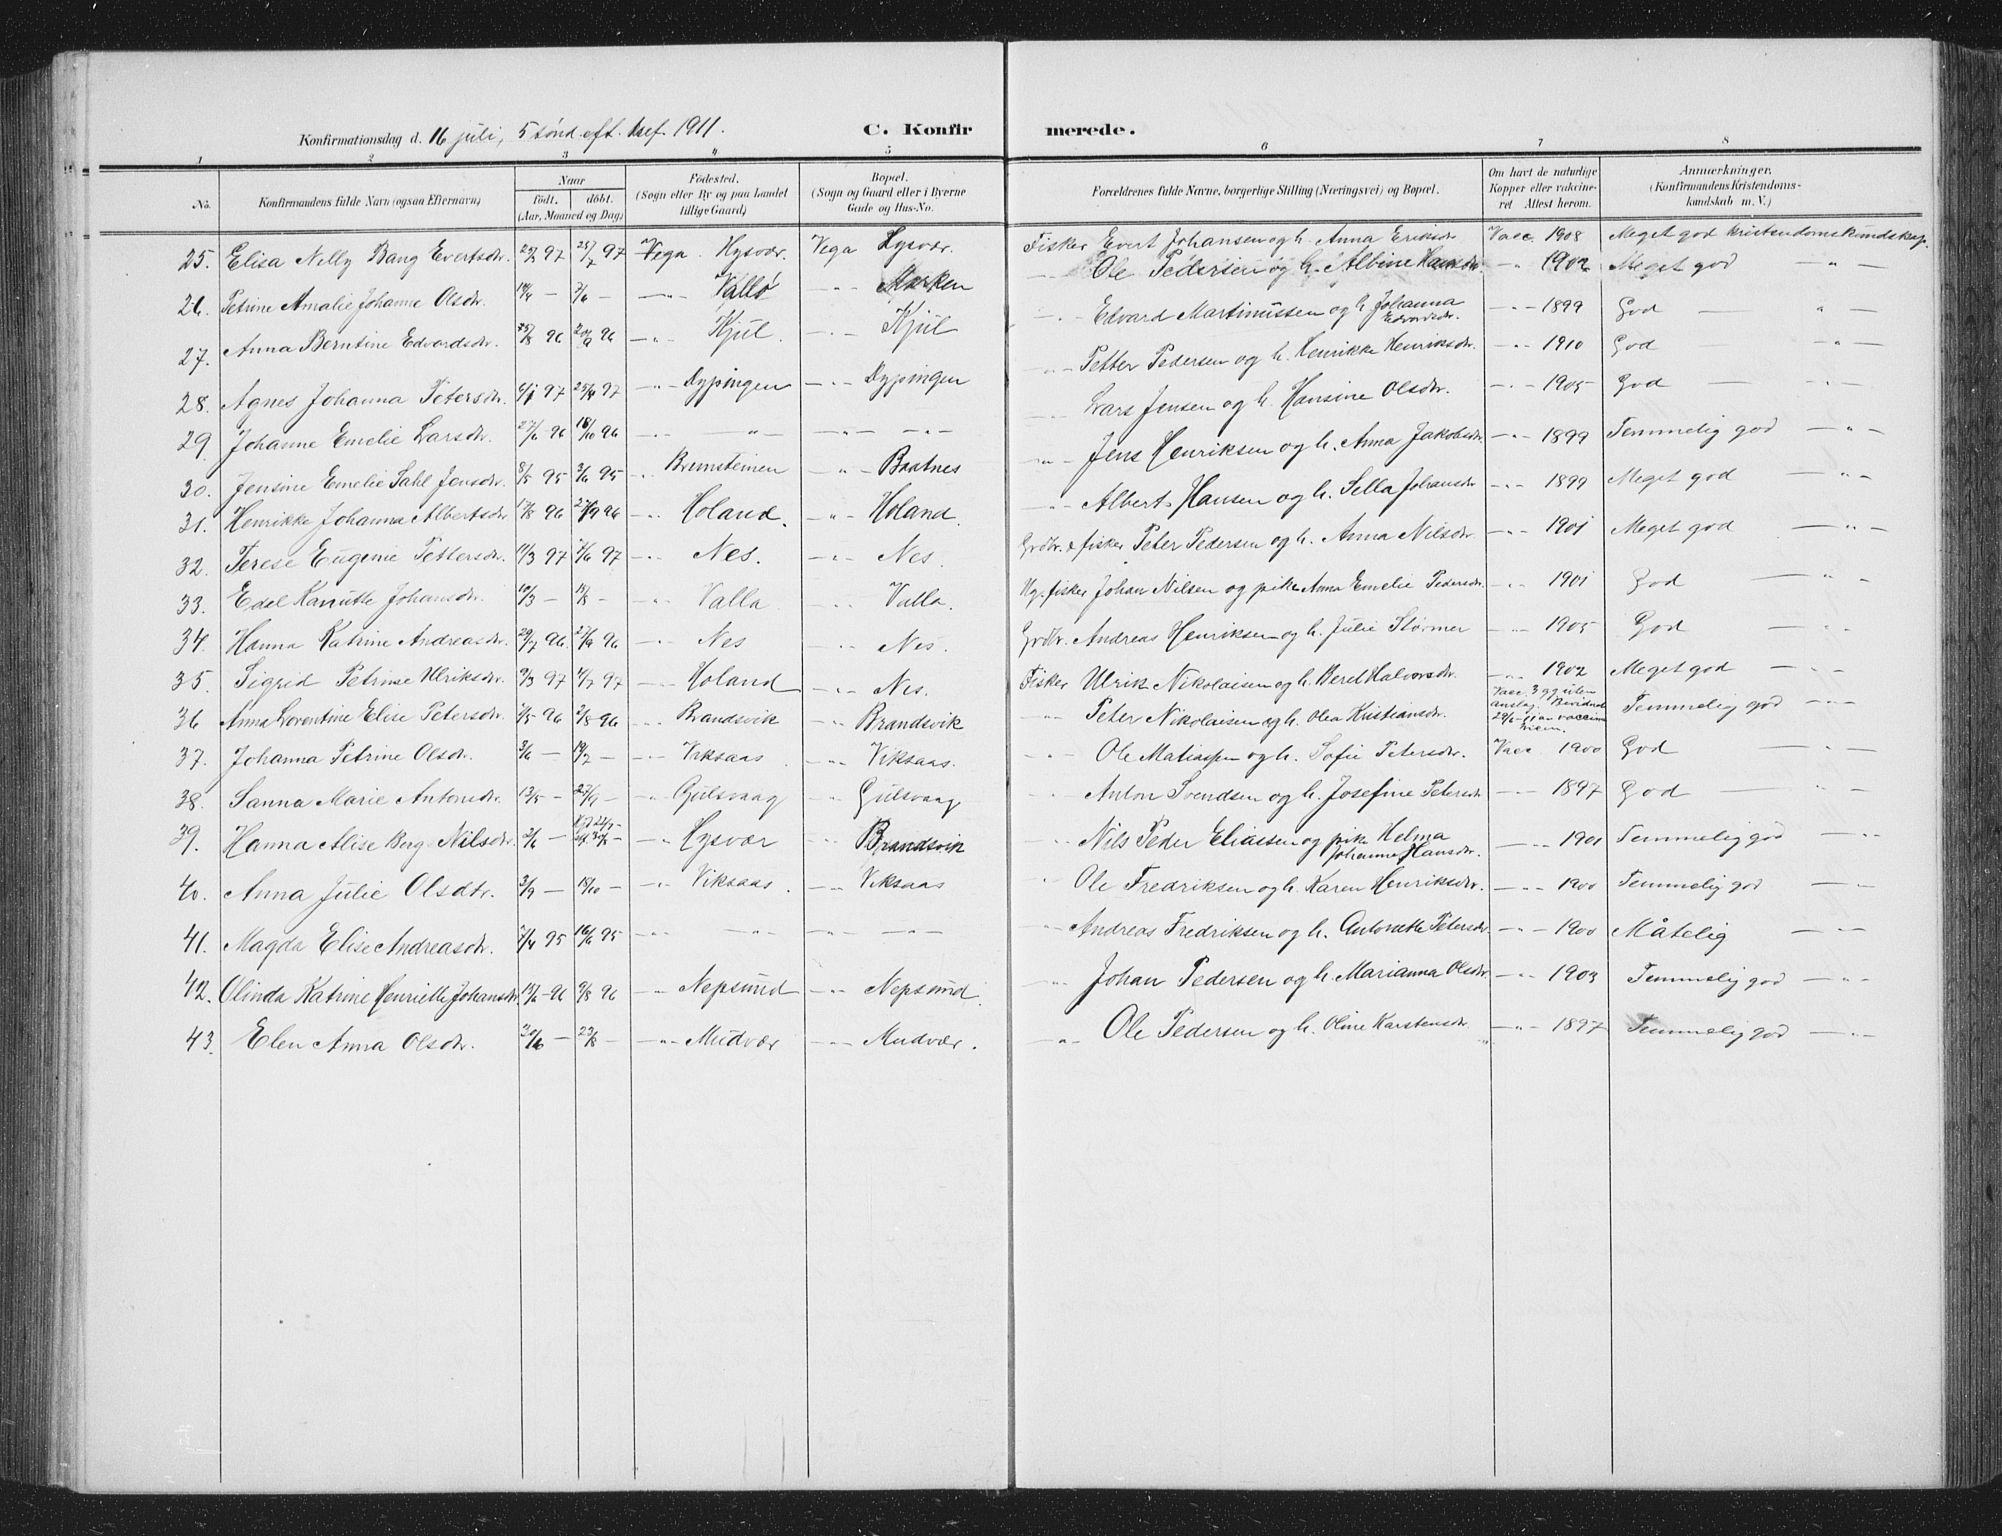 Konfirmationsdag d. 16 juli, 5 sönd. eft. tref. 1911. C. Konfirmerede.
1 2 3 4 5 6 7 8
No. Konfirmandens fulde Navn (ogsaa Efternavn) Naar födt. döbt. (Aar, Maaned og Dag) Födested. (Sogn eller By og paa Landet tillige Gaard) Bopæl. (Sogn og Gaard eller i Byerne Gade og Hus-No. Forældrenes fulde Navne, borgerlige Stilling (Næringsvei) og Bopæl. Om havt de naturlige Kopper eller vakcineret Attest herom. Anmærkninger. (Konfirmandens Kristendomskundskab m. V.)
25. Elisa Nelly Bang Evertsdr. 97 25/7 97 Vega Hysvær. Vega Hysvær. Fisker Evert Johansen og h. Anna Eriksdr. Vacc. 1908 Meget god kristendomskundskap.
26. Petrine Amalie Johanne Olsdr. — — -"- Vallö -"- Marken Ole Pedersen og h. Albine Hansdr. -"- 1902 Meget god — " —
27. Anna Berntine Edvardsdr. 25/8 96 20/9 96 -"- Kjul -"- Kjul -"- Edvard Martinussen og h. Johanna Edvardsdr. -"- 1899 God — "
28. Agnes Johanna Petersdr. 6/1 97 25/4 97 -"- Dypingen -"- Dypingen -"- Petter Pedersen og h. Henrikke Henriksdr. -"- 1910 God — " —
29. Johanne Emelie Larsdr. 27/6 96 18/10 96 -"- — " — -"- — " — -"- Lars Jensen og h. Hansine Olsdr. -"- 1905 God — " —
30. Jensine Emelie Sahl Jensdr. 8/5 95 3/6 95 -"- Bremsteinen -"- Baatnes -"- Jens Henriksen og h. Anna Jakobsdr. -"- 1899 Temmelig god — " —
31. Henrikke Johanna Albertsdr. 17/8 96 27/9 96 -"- Holand. -"- Holand. -"- Albert Hansen og h. Sella Johansdr. -"- 1899 Meget god — " —
32. Terese Eugenie Pettersdr. 11/3 97 7/6 97 -"- Nes. -"- Nes. Grdbr. & fisker Peter Pedersen og h. Anna Nilsdr. -"- 1901 Meget god — " —
33. Edel Johansdr. 10/3 — 15/8 — -"- Valla -"- Valla. fisker Johan Nilsen og pike Anna Emelie Pedersdr. -"- 1901 God — " —
34. Hanna Katrine Andreasdr. 29/7 96 27/9 96 -"- Nes -"- Nes. Grdbr. Andreas Henriksen og h. Julie Størmer -"- 1905 God — " —
35. Sigrid Petrine Ulriksdr. 9/3 97 97 -"- Holand -"- Nes. Fisker Ulrik Nikolaisen og h. Berel Halvorsdr. -"- 1902 Meget god — " —
36 Anna Lorentine Elise Petersdr. 96 2/8 96 -"- Brandsvik -"- Brandsvik -"- Peter Nikolaisen og h. Olea Kristiansdr. Vacc. 3 gg uten anslag. Temmelig god — " —
37. Johanna Petrine Olsdr. 3/6 — 19/7 — -"- Viksaas -"- Viksaas. -"- Ole Matiassen og h. Sofie Petersdr. Vacc 1900 God — " —
38. Sanna Marie Antonsdr. 13/5 — 27/9 — -"- Gulsvaag -"- Gulsvaag -"- Anton Svendsen og h. Josefine Petersdr. -"- 1897 God — " —
39. Hanna Alise Berg Nilsdr. 2/6 — -"- Hysvær -"- Brandsvik -"- Nils Peder Eliassen og pike Helma Johanne Hansdr. -"- 1901 Temmelig god — " —
40. Anna Julie Olsdtr. 3/9 — 18/10 — -"- Viksaas. -"- Viksaas -"- Ole Fredriksen og h. Karen Henriksdr. -"- 1900 Temmelig god — " —
41. Magda Elise Andreasdr. 7/4 95 16/6 95 -"- — " — -"- — " — -"- Andreas Fredriksen og h. Antonette Petersdr. -"- 1900 Måtelig — " —
42. Olinda Katrine Henriette Johansdr. 96 9/8 96 -"- Nepsund -"- Nepsund. -"- Johan Pedersen og h. Marianna Olsdr. -"- 1903 Temmelig god — " —
43. Elen Anna Olsdr. 30/6 — 23/8 — -"- Mudvær -"- Mudvær. -"- Ole Pedersen og h. Oline Karstensdr. -"- 1897 Temmelig god — " —